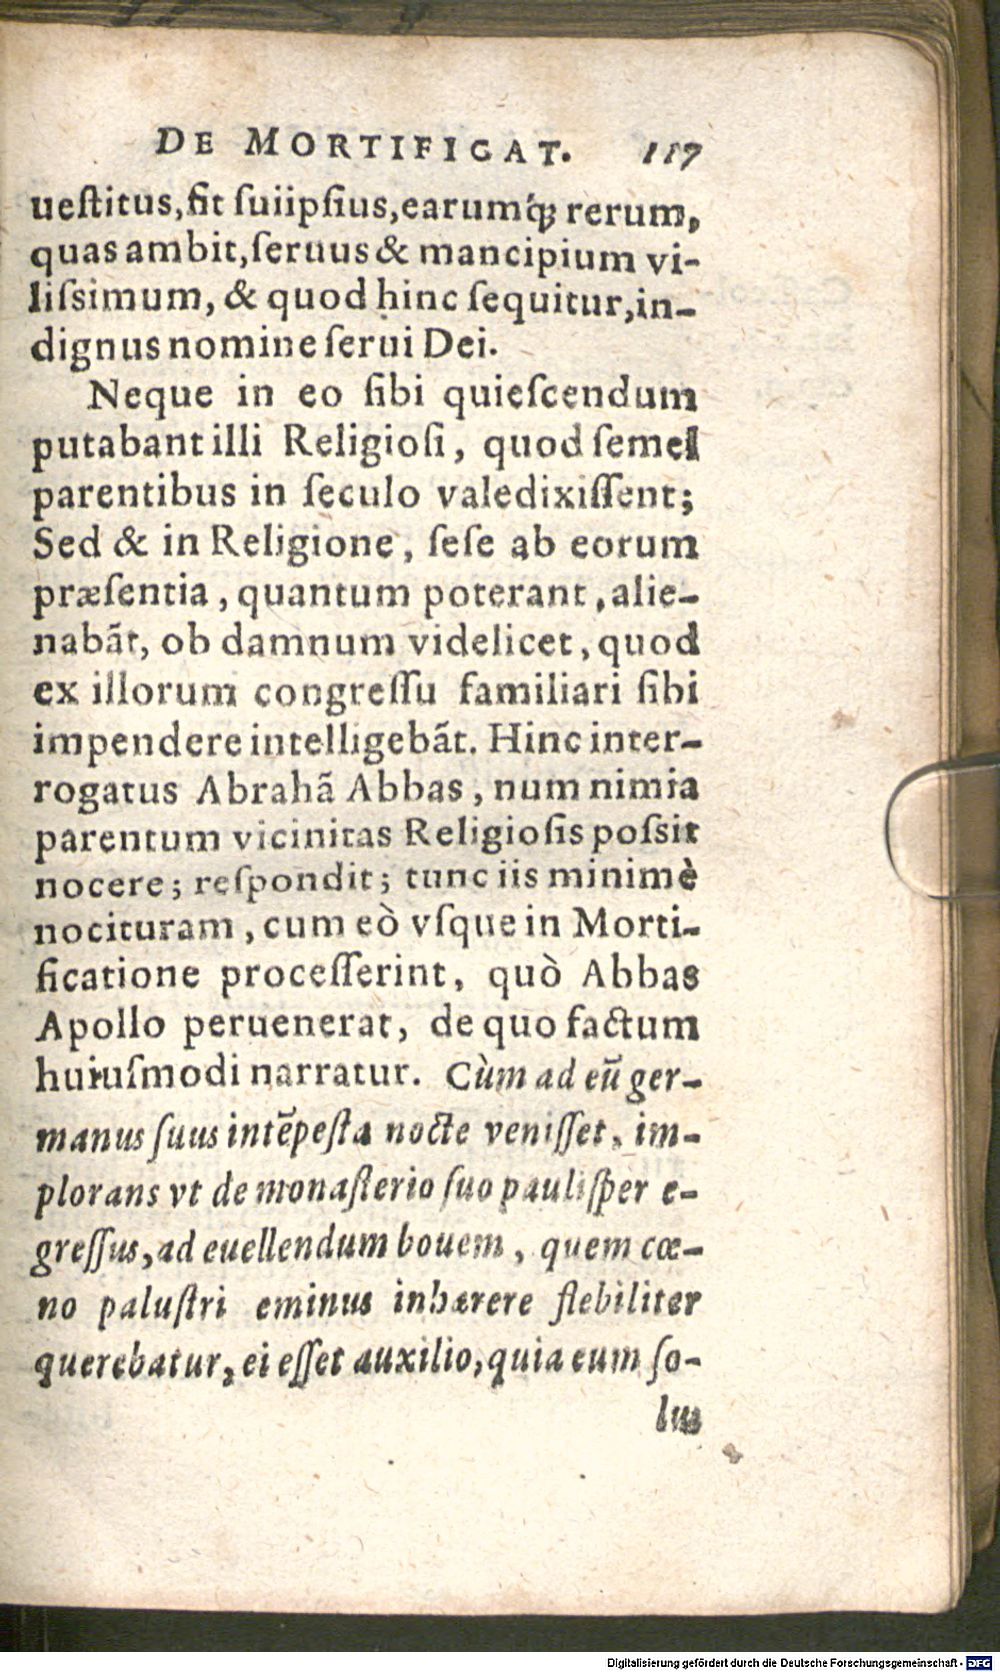 DE MORTIFICAT. 117
ueſtitus, ſit ſuiipſius, earumq́; rerum,
quas ambit, ſeruus & mancipium vi-
liſsimum, & quod hinc ſequitur, in-
dignus nomine ſerui Dei.
Neque in eo ſibi quieſcendum
putabant illi Religioſi, quod ſemel
parentibus in ſeculo valedixiſſent;
Sed & in Religione, ſeſe ab eorum
præſentia, quantum poterant, alie-
nabãt, ob damnum videlicet, quod
ex illorum congreſſu familiari ſibi
impendere intelligebãt. Hinc inter-
rogatus Abrahã Abbas, num nimia
parentum vicinitas Religioſis poſsit
nocere; reſpondit; tunc iis minimè
nocituram, cum eò vſque in Morti-
ficatione proceſſerint, quò Abbas
Apollo peruenerat, de quo factum
huiuſmodi narratur. Cùm ad eũ ger-
manus ſuus intẽpeſta nocte veniſſet, im-
plorans vt de monaſterio ſuo pauliſper e-
greſſus, ad euellendum bouem, quem cœ-
no paluſtri eminus inhærere flebiliter
querebatur, ei eſſet auxilio, quia eum ſo-
lus
Digitalisierung gefördert durch die Deutsche Forschungsgemeinschaft - DFG